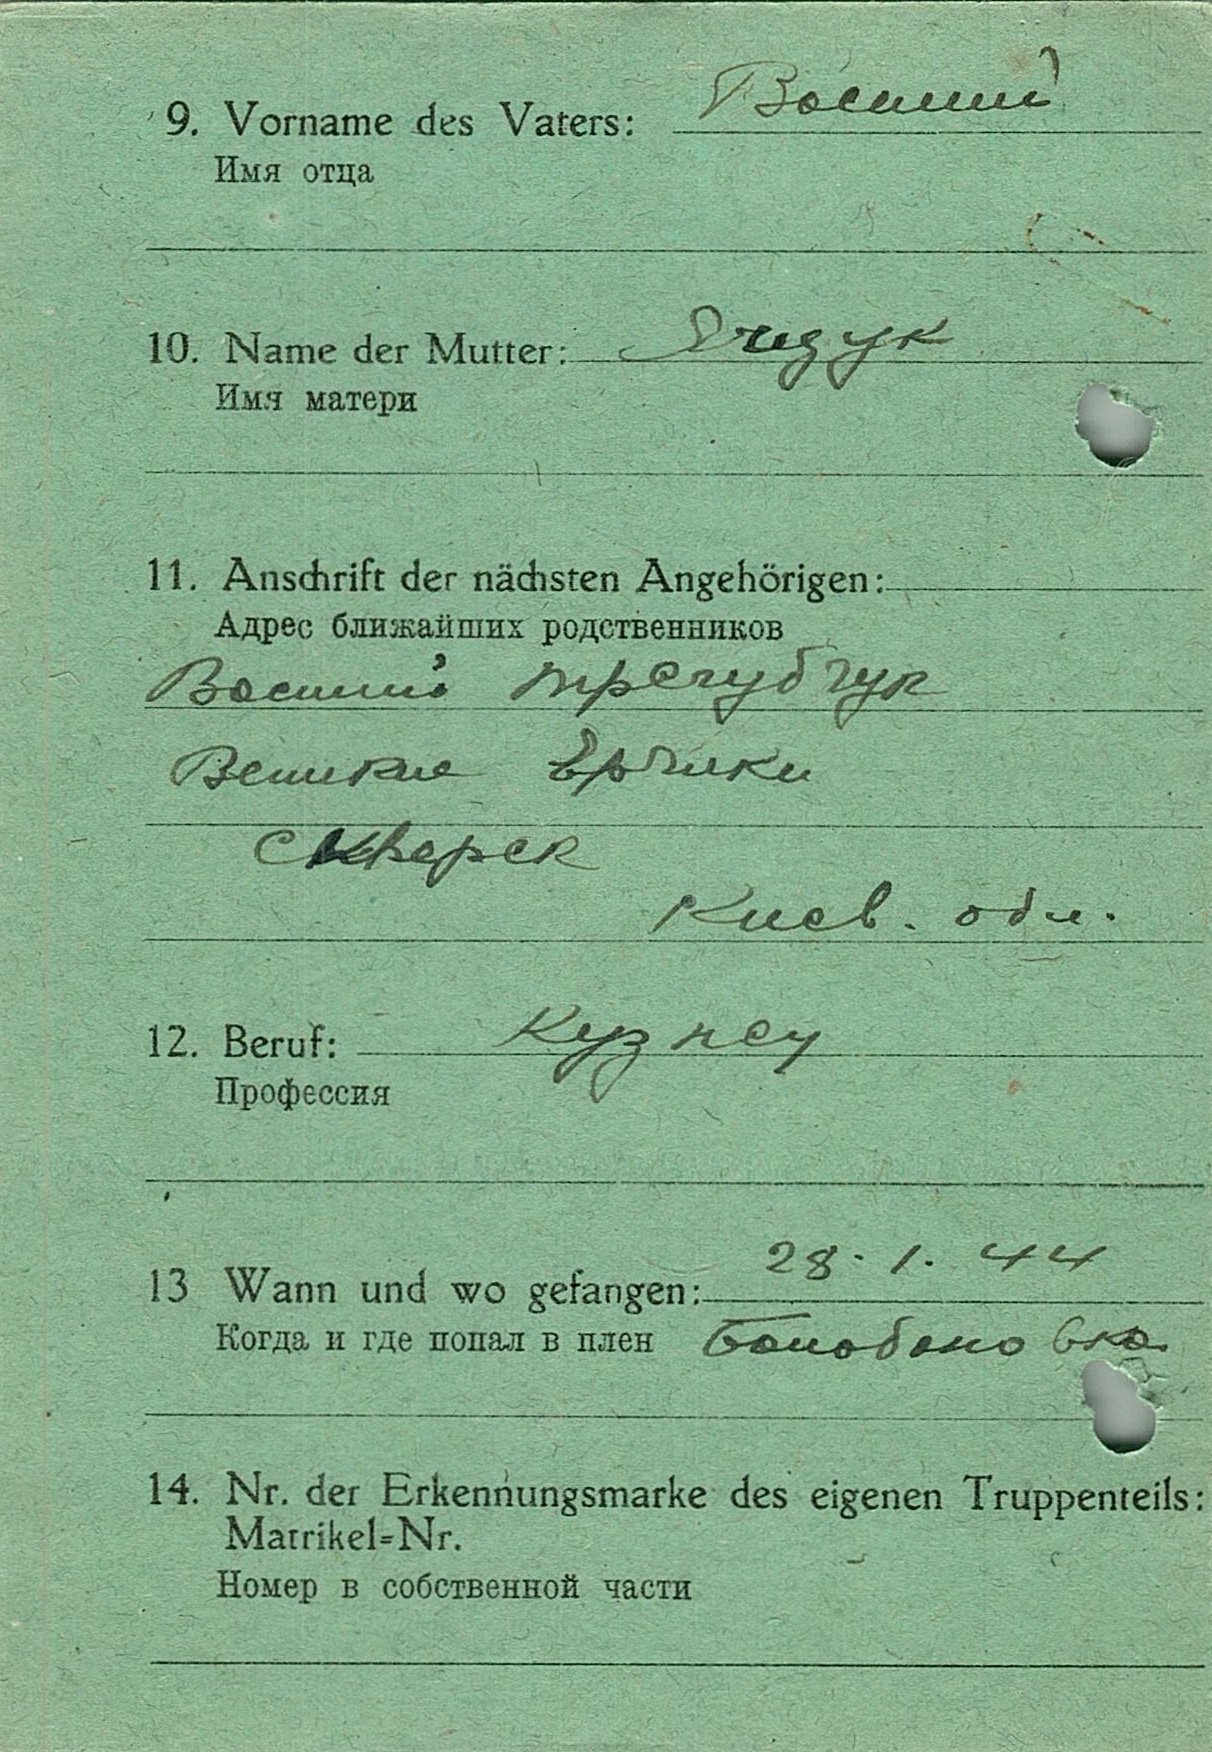 9. Vorname des Vaters: Василий
Имя отца
10. Name der Mutter:
Имя матери
11. Anschrift der nächsten Angehörigen:
Адрес ближайших родственников
Василий Трегубчук
Великие Ерчики
Сквирск
Киев. обл.
12. Beruf: Кузнец
Профессия
13 Wann und wo gefangen: 28. 1. 44
Когда и где попал в плен
14. Nr. der Erkennungsmarke des eigenen Truppenteils:
Matrikel=Nr.
Номер в собственной части